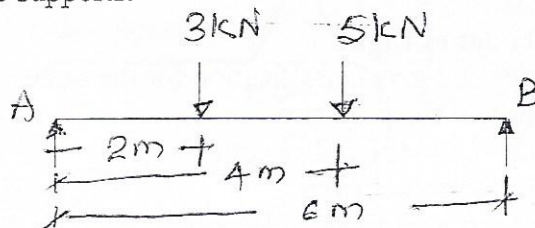 3kN 5kN
A B
2m
4m
6m